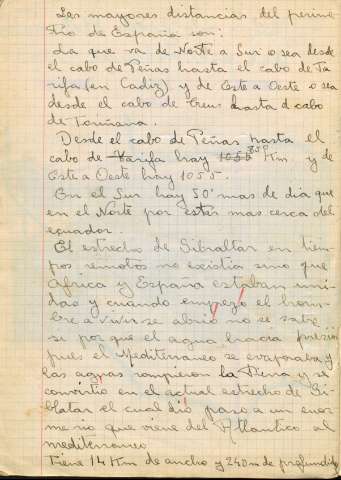 Las mayores distancias del perime
tro de España son:
La que va de Norte a Sur o sea desde
el cabo de Peñas hasta el cabo de Ta
rifa (en Cadiz) y de Este a Oeste o sea
desde el cabo de Creus hasta el cabo
de Touriñana.
Desde el cabo de Peñas hasta el
cabo de Tarifa hay 1055 850 Km. y de
Este a Oeste hay 1055.
En el Sur hay 50' mas de dia que
en el Norte por estar mas cerca del
ecuador.
El estrecho de Gibraltar en tiem
pos remotos no existia sino que
Africa y España estaban uni
das y cuando empezo el hom
bre a vivir se abrio no se sabe
si por que el agua hacia presion
pues el Mediterraneo se evaporaba y
las aguas rompieron la tierra y se
convirtio en el actual estrecho de Gi
blatar el cual dio paso a un enor
me rio que viene del Atlantico al
mediterraneo
Tiene 14 Km de ancho y 240 m de profundi